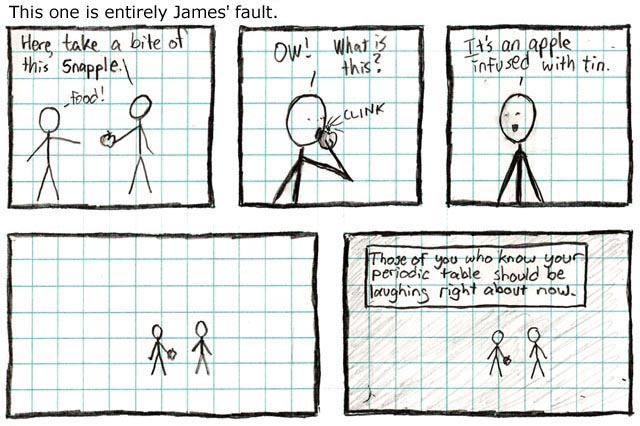 This one is entirely James' fault.
Here, take a bite of
this Snapple.
Food!
OW! What is
this?
CLINK
It's an apple
infused with tin.
Those of you who know your
periodic table should be
laughing right about now.